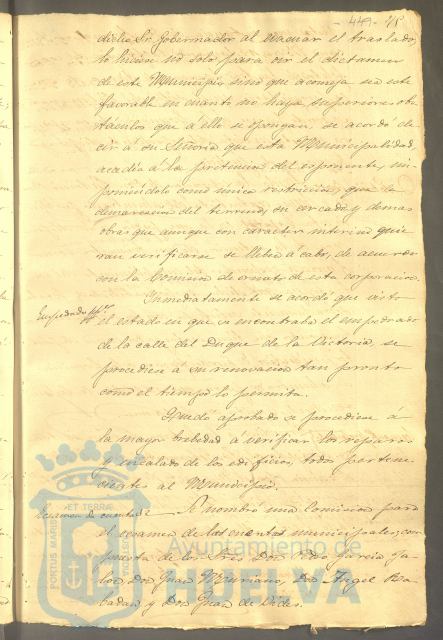 449 75
dicho Sr. Gobernador al evacuar el traslado,
lo hiciera no solo para oir el dictamen
de este Municipio sino que aconseja sea este
favorable en cuanto no haya superiores obs
táculos que á ello se opongan, se acordó de
cir á su Señoria que esta Municipalidad,
accedia á la pretension del esponente, im
poniéndole como única restriccion, que la
demarcacion del terreno, su cercado y demas
obras que aunque con caracter interino quie
ran verificarse se lleve á cabo, de acuerdo
con la Comision de ornato de esta corporacion.
Inmediatamente se acordó que visto
Empedrado
el estado en que se encontraba el empedrado
de la calle del Duque de la Victoria, se
procediera á su renovacion tan pronto
como el tiempo lo permita.
Quedó aprobado se procediera á
la mayor brebedad á verificar los reparos
y encalado de los edificios, todos pertene-
cientes al Municipio.
Examen de cuentas
Se nombró una Comision para
el examen de las cuentas municipales, com
puesta de los Sres. Don Pedro Garcia Ja
lon, Don Juan Mauriano, Don Angel Ra
badan, y Don Juan de Vides.
PORTUS MARIS
ET TERRAE
CUSTODIA
Ayuntamiento de
HUELVA